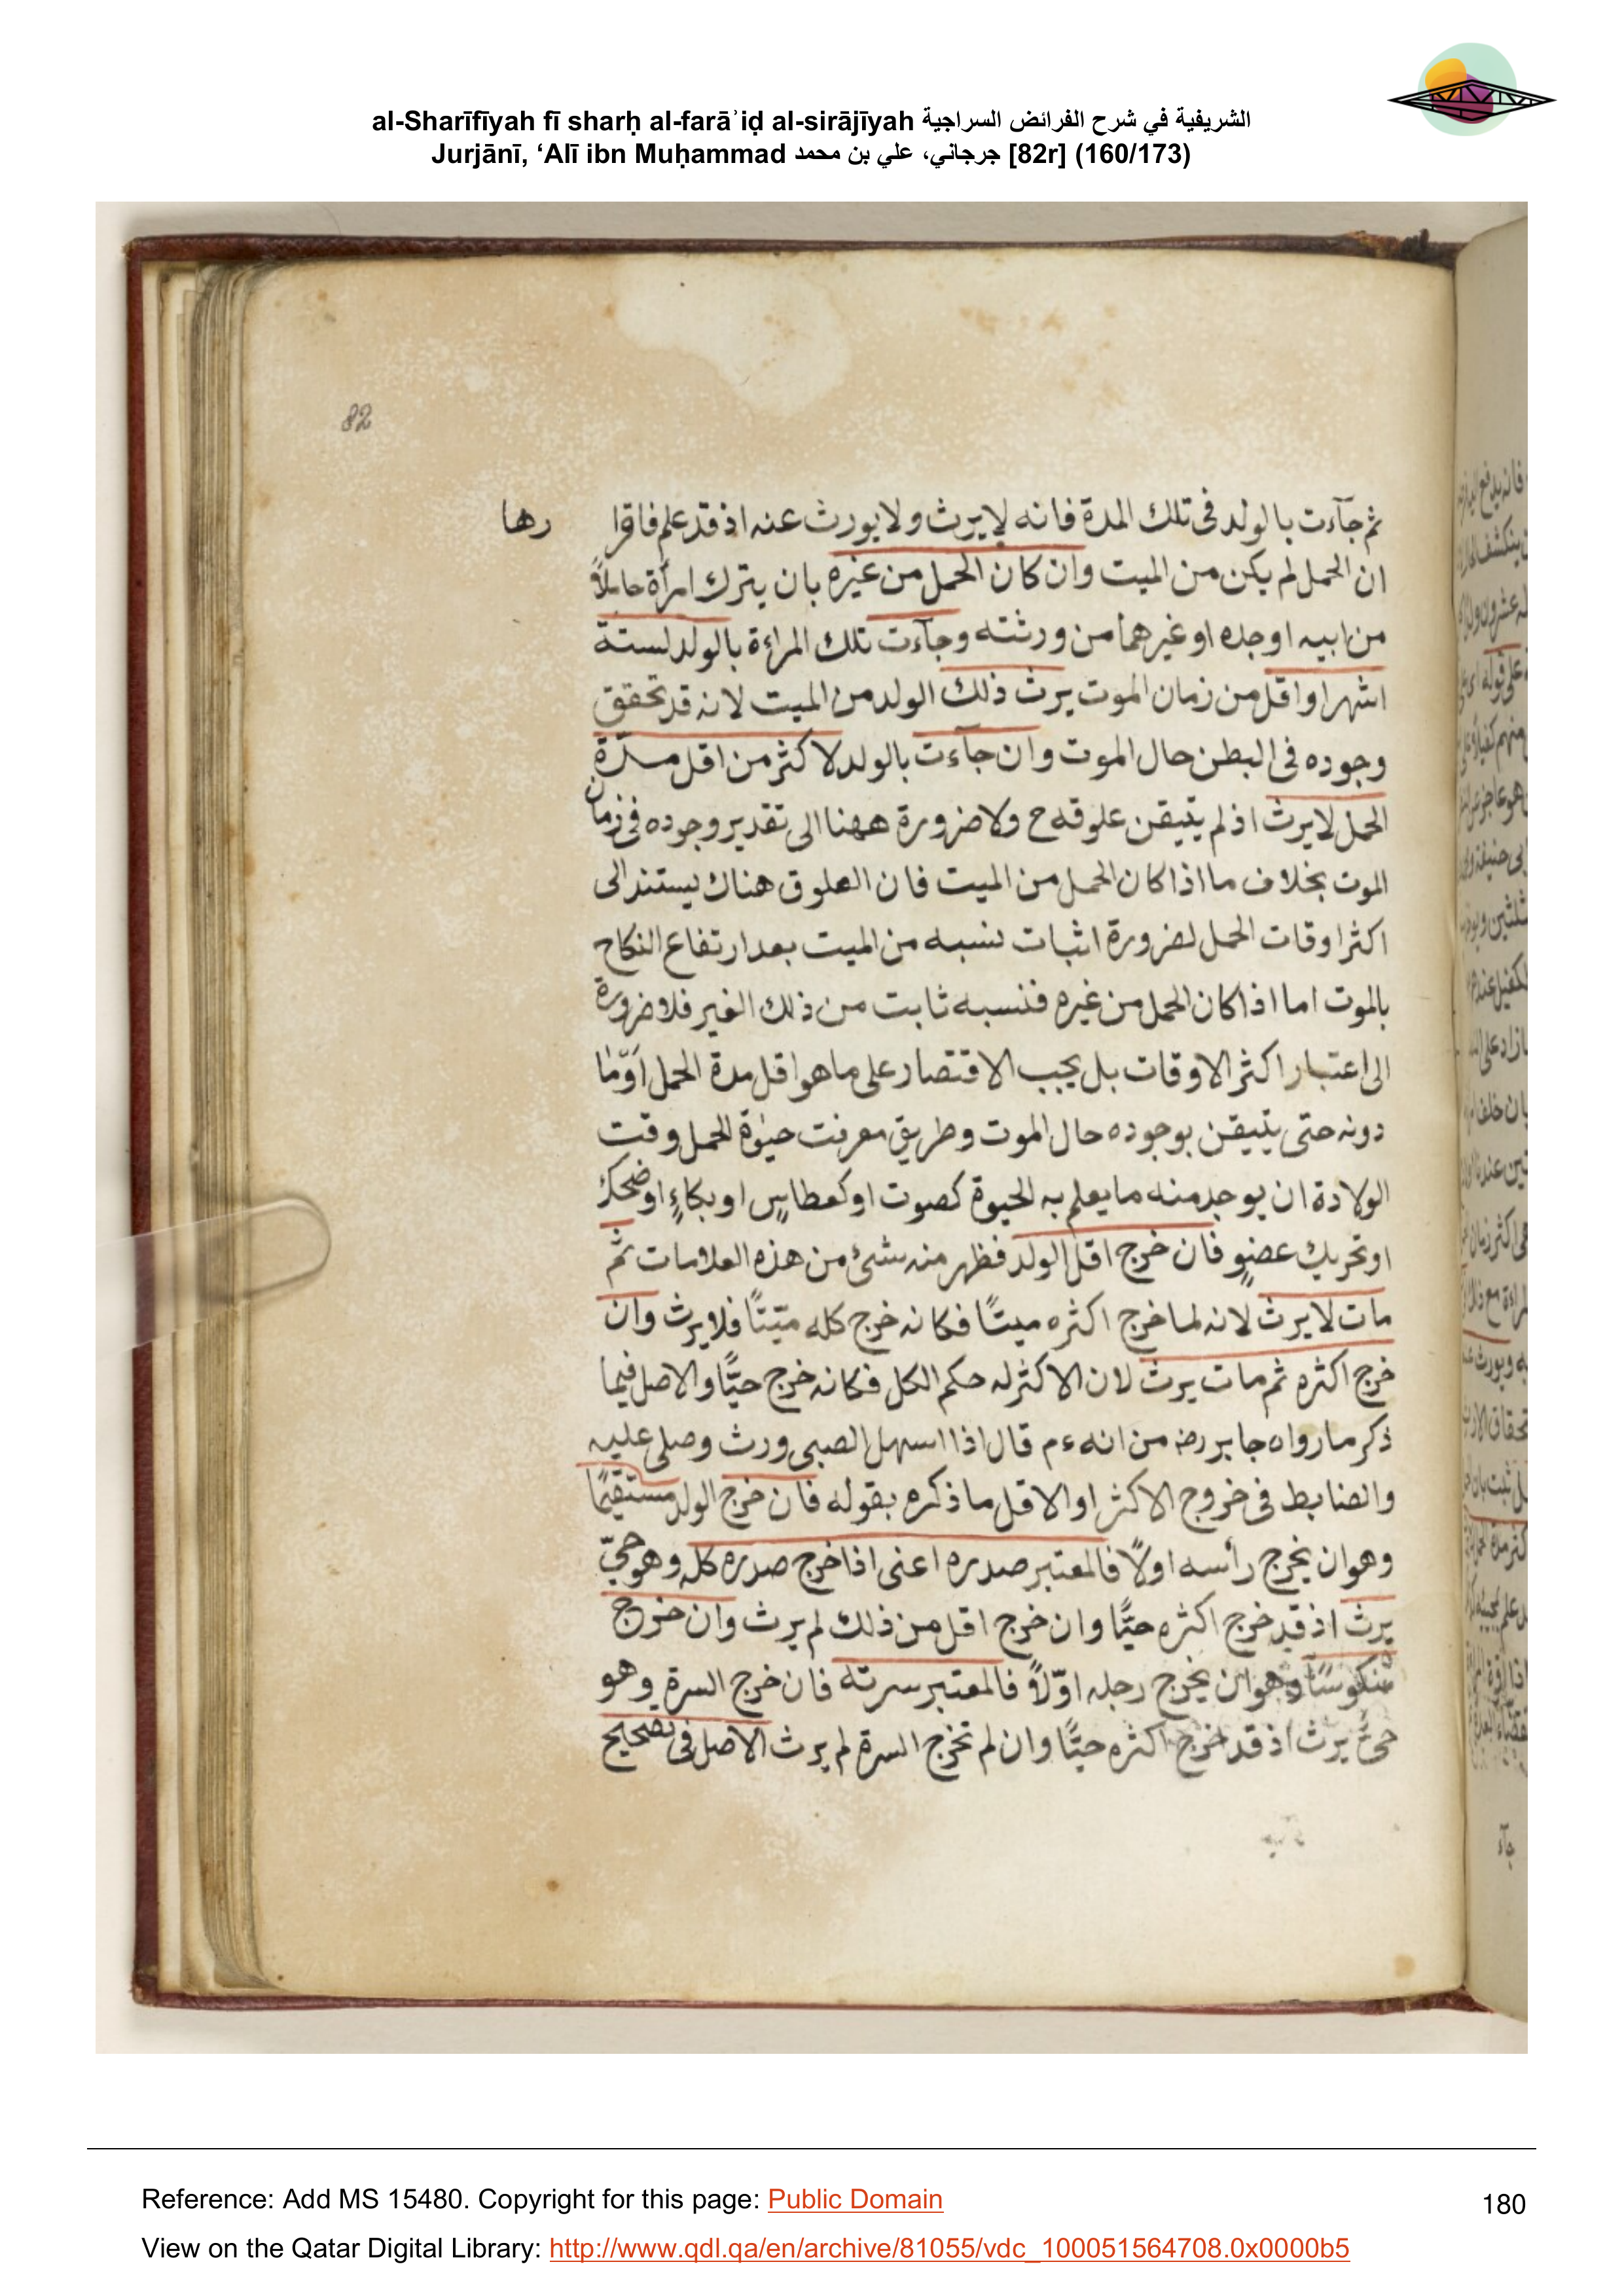 al-Sharīfīyah fī sharḥ al-farāʾiḍ al-sirājīyah الشريفية في شرح الفرائض السراجية
Jurjānī, ‘Alī ibn Muḥammad جرجاني، علي بن محمد [82r] (160/173)
82
ثم جآءت بالولد فى تلك المدة فانه لايرث ولايورث عنه اذ قد علم فاقرا رها
ان الحمل لم يكن من الميت وان كان الحمل من غيره بان يترك امرأة حاملاً
من ابيه اوجده او غيرهما من ورثته وجآءت تلك المراءة بالولد لستة
اشهر او اقل من زمان الموت يرث ذلك الولد من الميت لانه قد تحقق
وجوده فى البطن حال الموت وان جآءت بالولد لاكثر من اقل مدّة
الحمل لايرث اذ لم يتيقن علوقه ح ولاضرورة ههنا الى تقدير وجوده فى زمان
الموت بخلاف ما اذا كان الحمل من الميت فان العلوق هناك يستند الى
اكثر اوقات الحمل لضرورة اثبات نسبه من الميت بعد ارتفاع النكاح
بالموت اما اذا كان الحمل من غيره فنسبه ثابت من ذلك الغير فلا ضرورة
الى اعتبار اكثر الاوقات بل يجب الاقتصار على ما هو اقل مدة الحمل اَوْمَا
دونه حتى يتيقن بوجوده حال الموت وطريق معرفت حيٰوة الحمل وقت
الولادة ان يوجد منه ما يعلم به الحيوة كصوت او كعطاسٍ او بكاءٍ او ضحك
او تحريك عضوٍ فان خرج اقل الولد فظهر منه شئ من هذه العلامات ثم
مات لايرث لانه لما خرج اكثره ميتًا فكانه خرج كله ميّتًا فلايرث وان
خرج اكثره ثم مات يرث لان الاكثر له حكم الكل فكانه خرج حيًّا والاصل فيما
ذكر ما رواه جابر رضہ من انه ءم قال اذا اسهل الصبى ورث وصلى عليه
والضابط فى خروج الاكثر او الاقل ما ذكره بقوله فان خرج الولد مستقيمًا
وهو ان يخرج رأسه اولاً فالمعتبر صدره اعنى اذا خرج صدره كله وهو حىّ
يرث اذ قد خرج اكثره حيًّا وان خرج اقل من ذلك لم يرث وان خرج
منكوسًا وهو ان يخرج رجله اوّلاً فالمعتبر سرته فان خرج السرة وهو
حىّ يرث اذ قد خرج اكثره حيًّا وان لم تخرج السرة لم يرث الاصل فى تصحيح
Reference: Add MS 15480. Copyright for this page: Public Domain
180
View on the Qatar Digital Library: http://www.qdl.qa/en/archive/81055/vdc_100051564708.0x0000b5